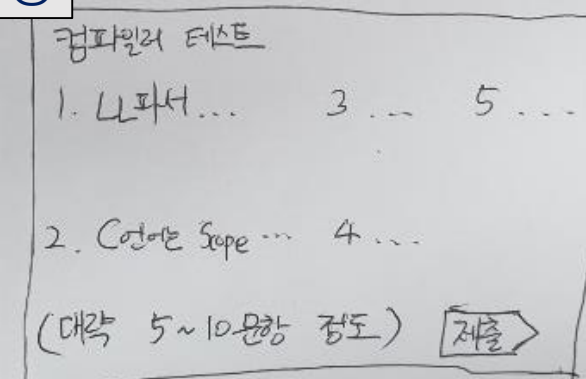 컴파일러 테스트
1. LL파서... 3 ... 5 ...
2. C언어는 Scope ... 4 ...
(대략 5~10문항 정도) 제출